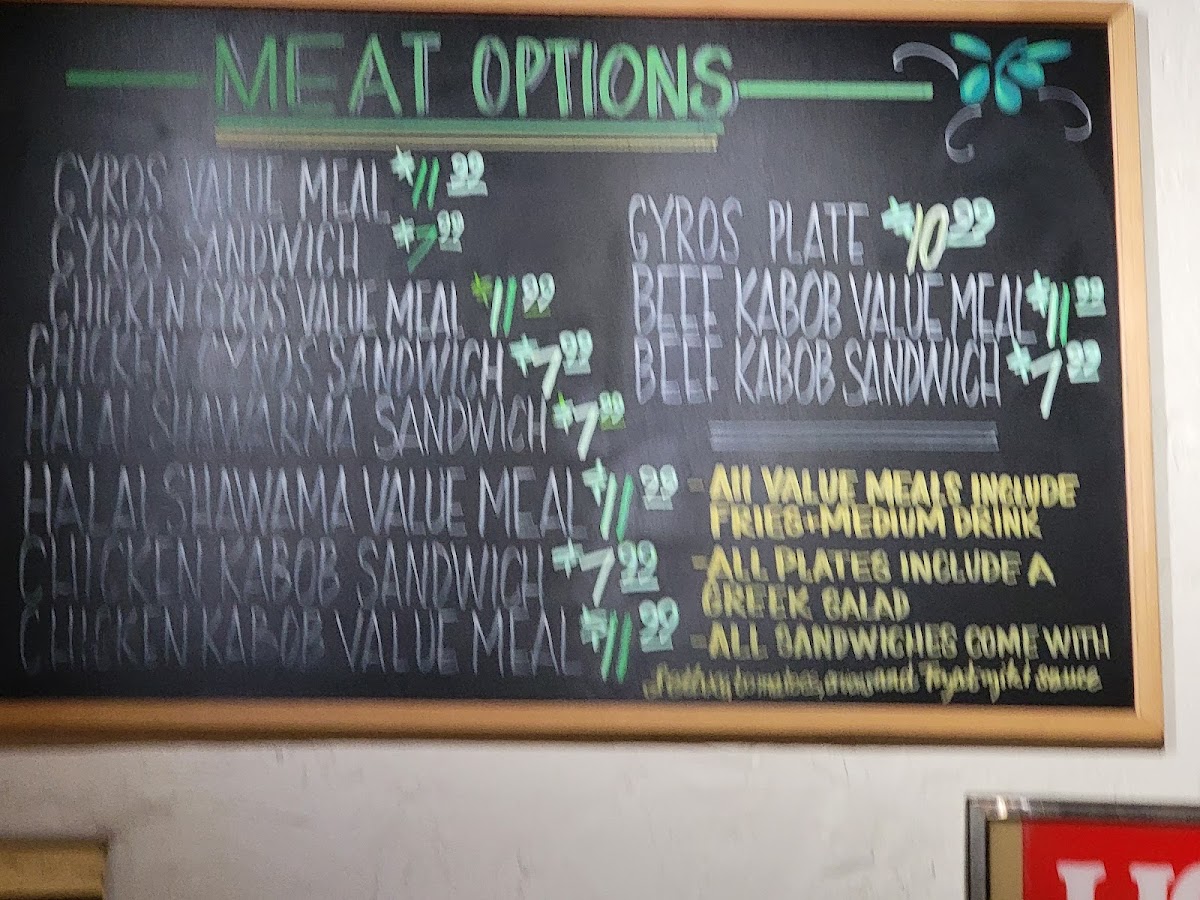 MEAT OPTIONS
GYROS VALUE MEAL $11.99
GYROS SANDWICH $7.99
CHICKEN GYROS VALUE MEAL $11.99
CHICKEN GYROS SANDWICH $7.99
HALAL SHAWARMA SANDWICH $7.99
HALAL SHAWAMA VALUE MEAL $11.99
CHICKEN KABOB SANDWICH $7.99
CHICKEN KABOB VALUE MEAL $11.99
GYROS PLATE $10.99
BEEF KABOB VALUE MEAL $11.99
BEEF KABOB SANDWICH $7.99
- All VALUE MEALS INCLUDE
FRIES + MEDIUM DRINK
- ALL PLATES INCLUDE A
GREEK SALAD
- ALL SANDWICHES COME WITH
and sauce